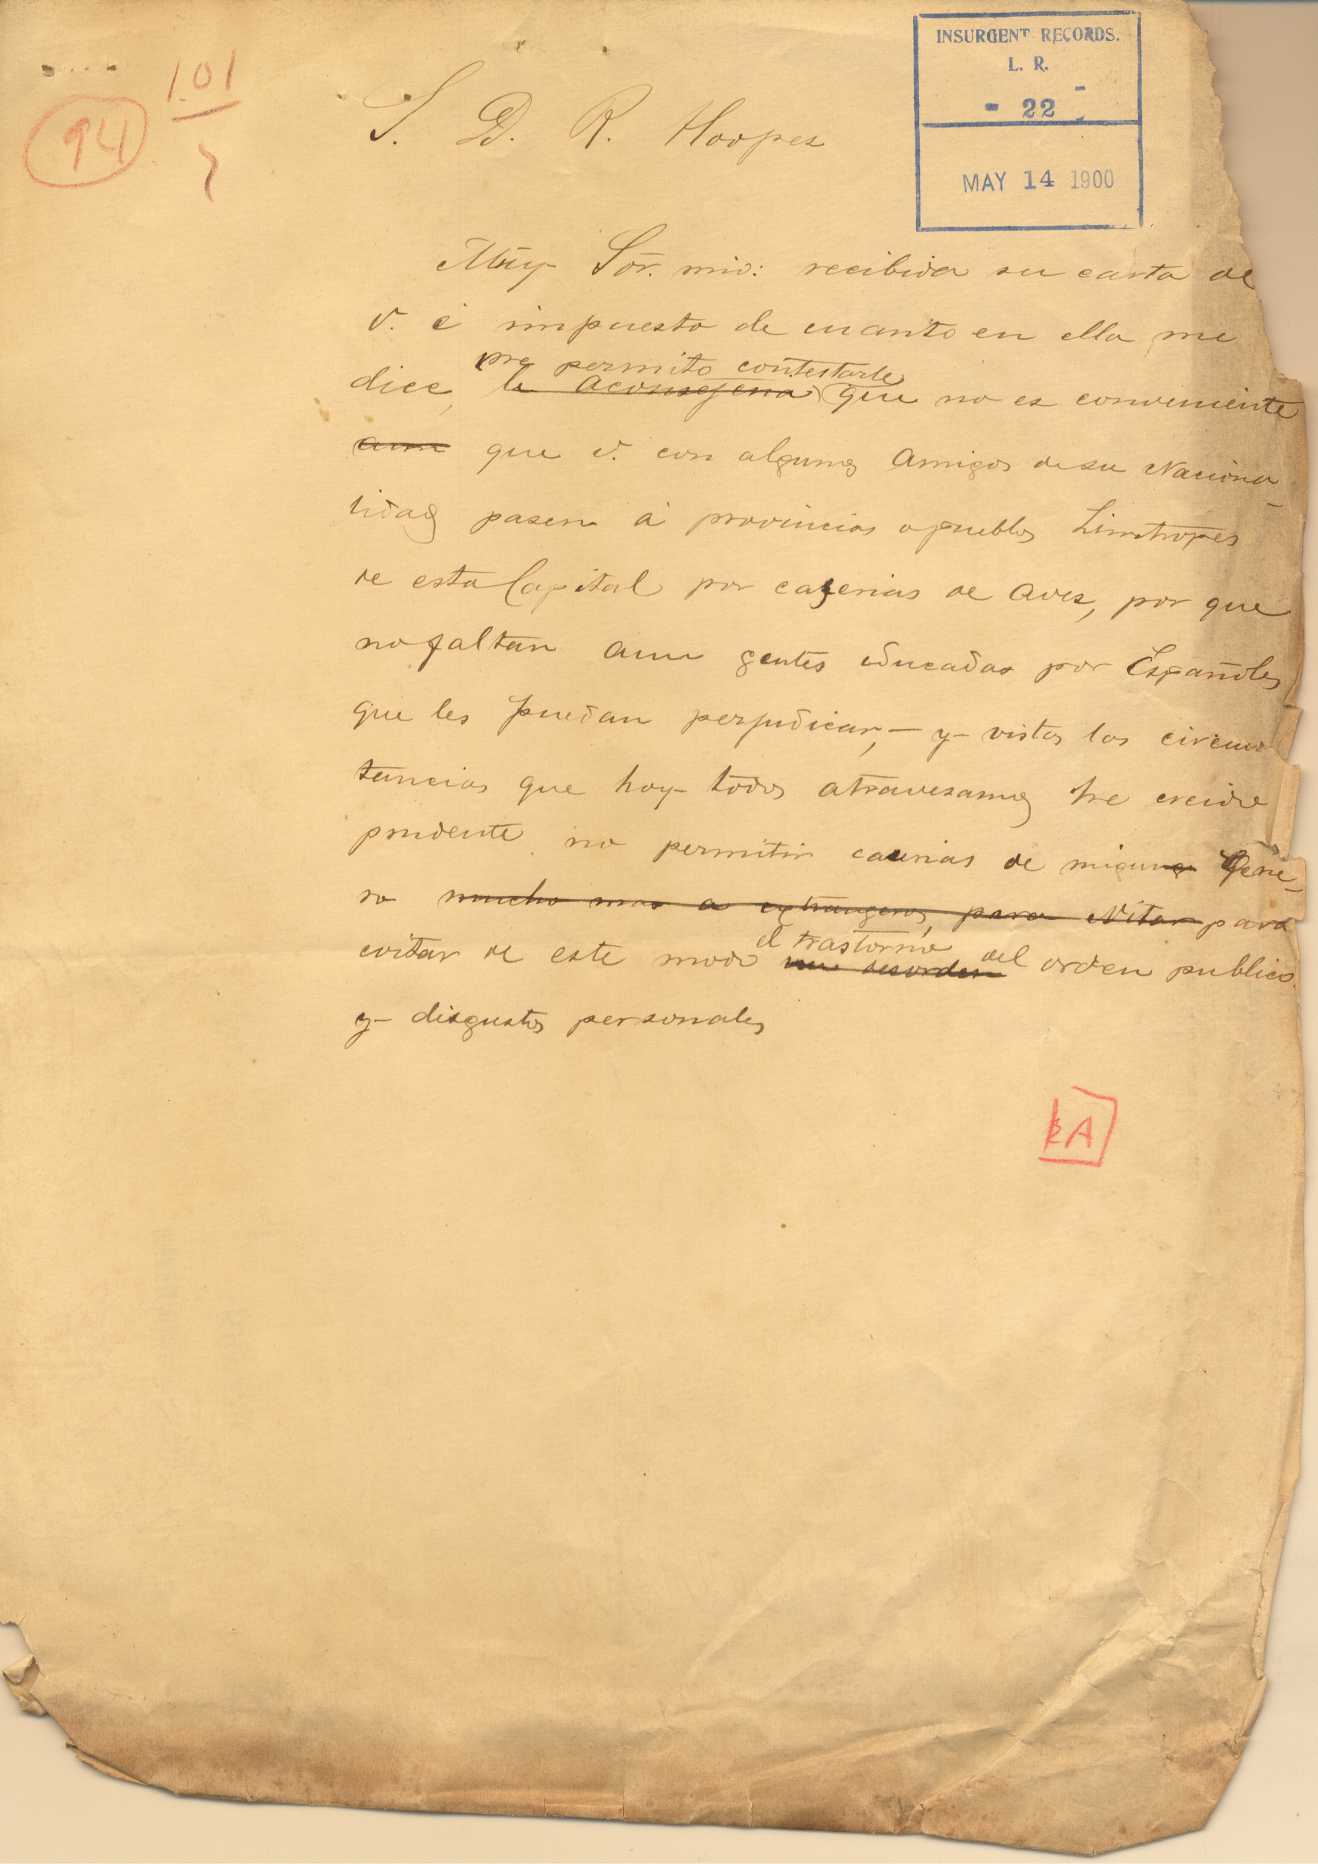 INSURGENT RECORDS.
L. R.
- 22 -
MAY 14 1900
101
7
94
S. D. R. Hoopes
Muy Sõr. mio: recibida su carta de
V. é impuesto de cuanto en ella me
me permito contestarle
dice, le aconsejena que no es conveniente
aun que V. con algunos amigos de su Naciona-
lidad pasen á provincias o pueblos Limitropes
de esta Capital por caserias de aves, por que
no faltan aun gentes educadas por Españoles
que les puedan perjudicar, - y vistas las circuns
tancias que hoy todos atravesamos he creido
prudente no permitir caserias de ningun gene-
ro mucho mas a extrangeros, para evitar para
el trastorno del
evitar de este modo un desorden orden publico
y disgustos personales
A